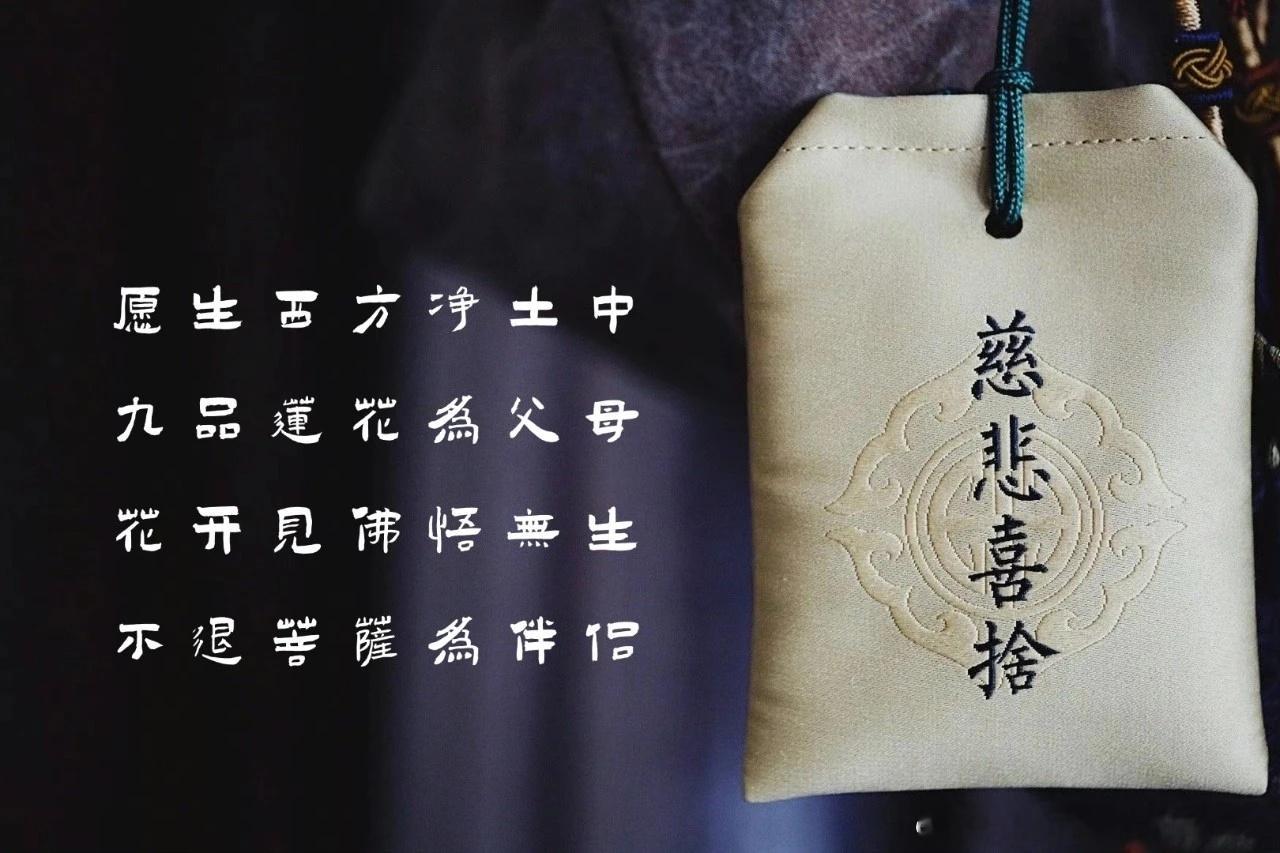 愿生西方净土中
九品蓮花為父母
花开見佛悟無生
不退菩薩為伴侣
慈悲喜捨